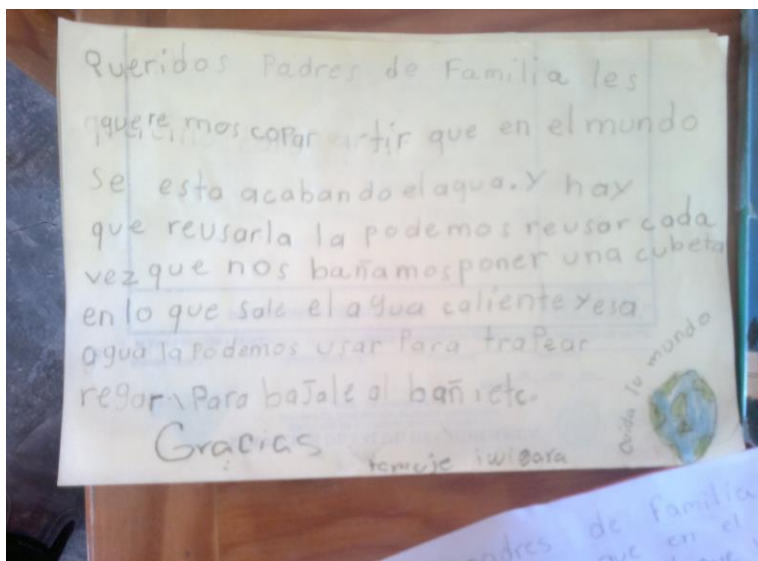 Queridos Padres de Familia les
queremos copar artir que en el mundo
se esta acabando el agua. y hay
que reusarla la podemos reusar cada
vez que nos bañamos poner una cubeta
en lo que sale el agua caliente y esa
agua la Podemos usar Para trapear
regar, Para bajale al bañ, etc.
Gracias
iwigara
Cuida tu mundo
adres de familia
que en el